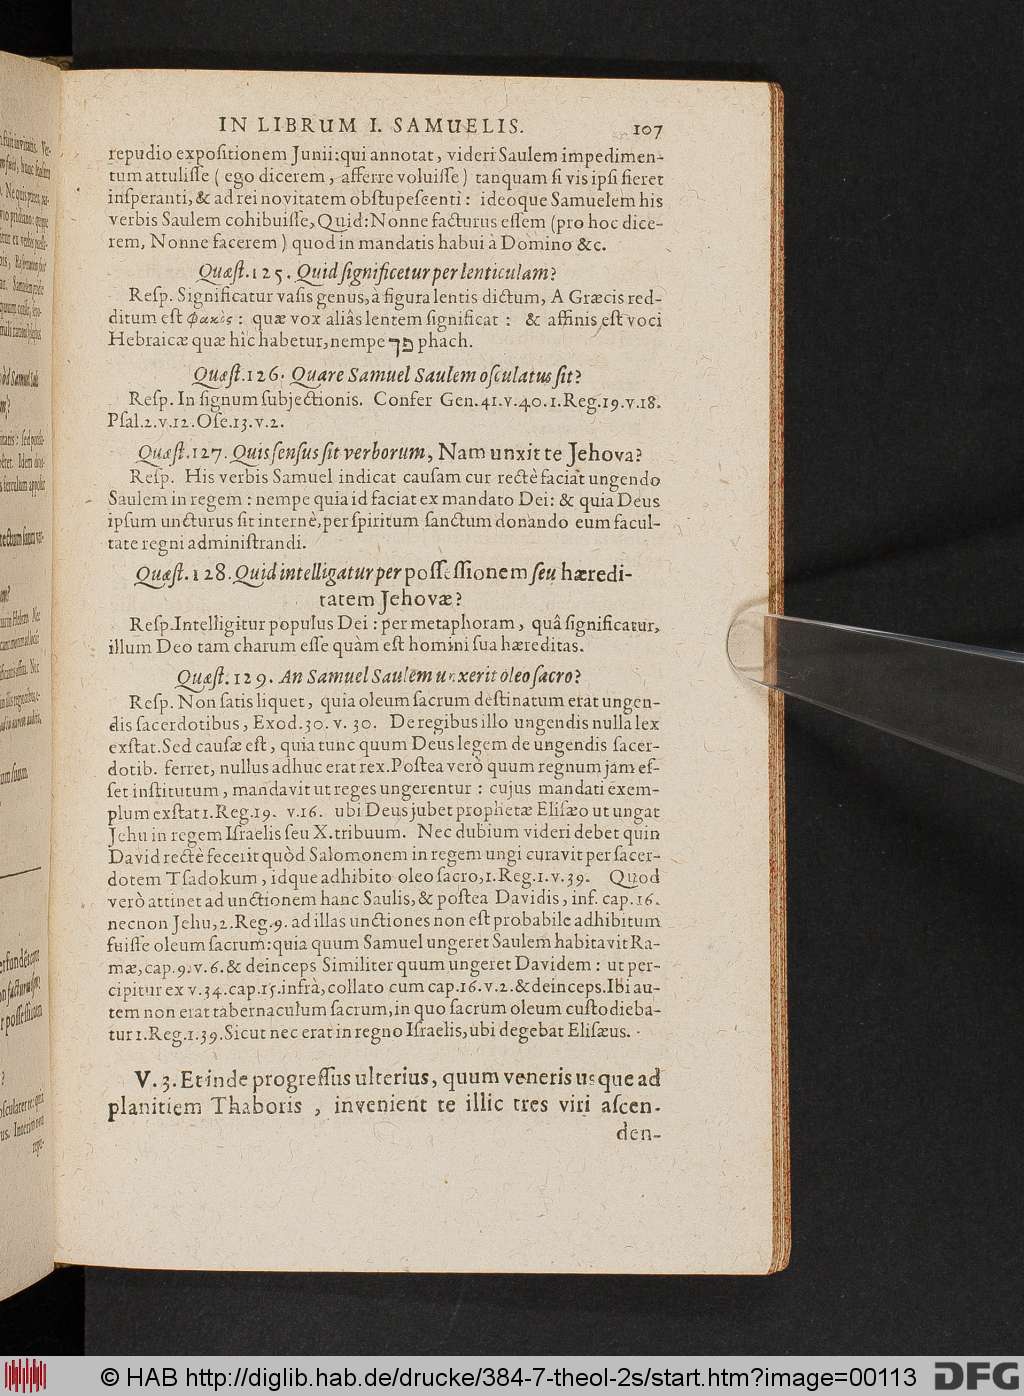 IN LIBRUM I. SAMUELIS. 107
repudio expoſitionem Junii: qui annotat, videri Saulem impedimen-
tum attuliſſe ( ego dicerem, afferre voluiſſe) tanquam ſi vis ipſi fieret
inſperanti, & ad rei novitatem obſtupeſcenti: ideoque Samuelem his
verbis Saulem cohibuiſſe, Quid: Nonne facturus eſſem (pro hoc dice-
rem, Nonne facerem) quod in mandatis habui à Domino &c.
Quæſt. 125. Quid ſignificetur per lenticulam?
Reſp. Significatur vaſis genus, à figura lentis dictum, A Græcis red-
ditum eſt φακὸς: quæ vox aliâs lentem ſignificat: & affinis eſt voci
Hebraicæ quæ hîc habetur, nempe פך phach.
Quæſt. 126. Quare Samuel Saulem oſculatus ſit?
Reſp. In ſignum ſubjectionis. Confer Gen. 41. v. 40. 1. Reg. 19. v. 18.
Pſal. 2. v. 12. Oſe. 13. v. 2.
Quæſt. 127. Quis ſenſus ſit verborum, Nam unxit te Jehova?
Reſp. His verbis Samuel indicat cauſam cur rectè faciat ungendo
Saulem in regem: nempe quia id faciat ex mandato Dei: & quia Deus
ipſum uncturus ſit internè, per ſpiritum ſanctum donando eum facul-
tate regni adminiſtrandi.
Quæſt. 128. Quid intelligatur per poſſeſſionem ſeu hæredi-
tatem Jehovæ?
Reſp. Intelligitur populus Dei: per metaphoram, quâ ſignificatur,
illum Deo tam charum eſſe quàm eſt homini ſua hæreditas.
Quæſt. 129. An Samuel Saulem unxerit oleo ſacro?
Reſp. Non ſatis liquet, quia oleum ſacrum deſtinatum erat ungen-
dis ſacerdotibus, Exod. 30. v. 30. De regibus illo ungendis nulla lex
exſtat. Sed cauſæ eſt, quia tunc quum Deus legem de ungendis ſacer-
dotib. ferret, nullus adhuc erat rex. Poſtea verò quum regnum jam eſ-
ſet inſtitutum, mandavit ut reges ungerentur: cujus mandati exem-
plum exſtat 1. Reg. 19. v. 16. ubi Deus jubet prophetæ Eliſæo ut ungat
Jehu in regem Iſraelis ſeu X. tribuum. Nec dubium videri debet quin
David rectè fecerit quòd Salomonem in regem ungi curavit per ſacer-
dotem Tſadokum, idque adhibito oleo ſacro, 1. Reg. 1. v. 39. Quod
verò attinet ad unctionem hanc Saulis, & poſtea Davidis, inf. cap. 16.
necnon Jehu, 2. Reg. 9. ad illas unctiones non eſt probabile adhibitum
fuiſſe oleum ſacrum: quia quum Samuel ungeret Saulem habitavit Ra-
mæ, cap. 9. v. 6. & deinceps Similiter quum ungeret Davidem: ut per-
cipitur ex v. 34. cap. 15. infrà, collato cum cap. 16. v. 2. & deinceps. Ibi au-
tem non erat tabernaculum ſacrum, in quo ſacrum oleum cuſtodieba-
tur 1. Reg. 1. 39. Sicut nec erat in regno Iſraelis, ubi degebat Eliſæus.
V. 3. Et inde progreſſus ulterius, quum veneris usque ad
planitiem Thaboris, invenient te illic tres viri aſcen-
den-
© HAB http://diglib.hab.de/drucke/384-7-theol-2s/start.htm?image=00113
DFG